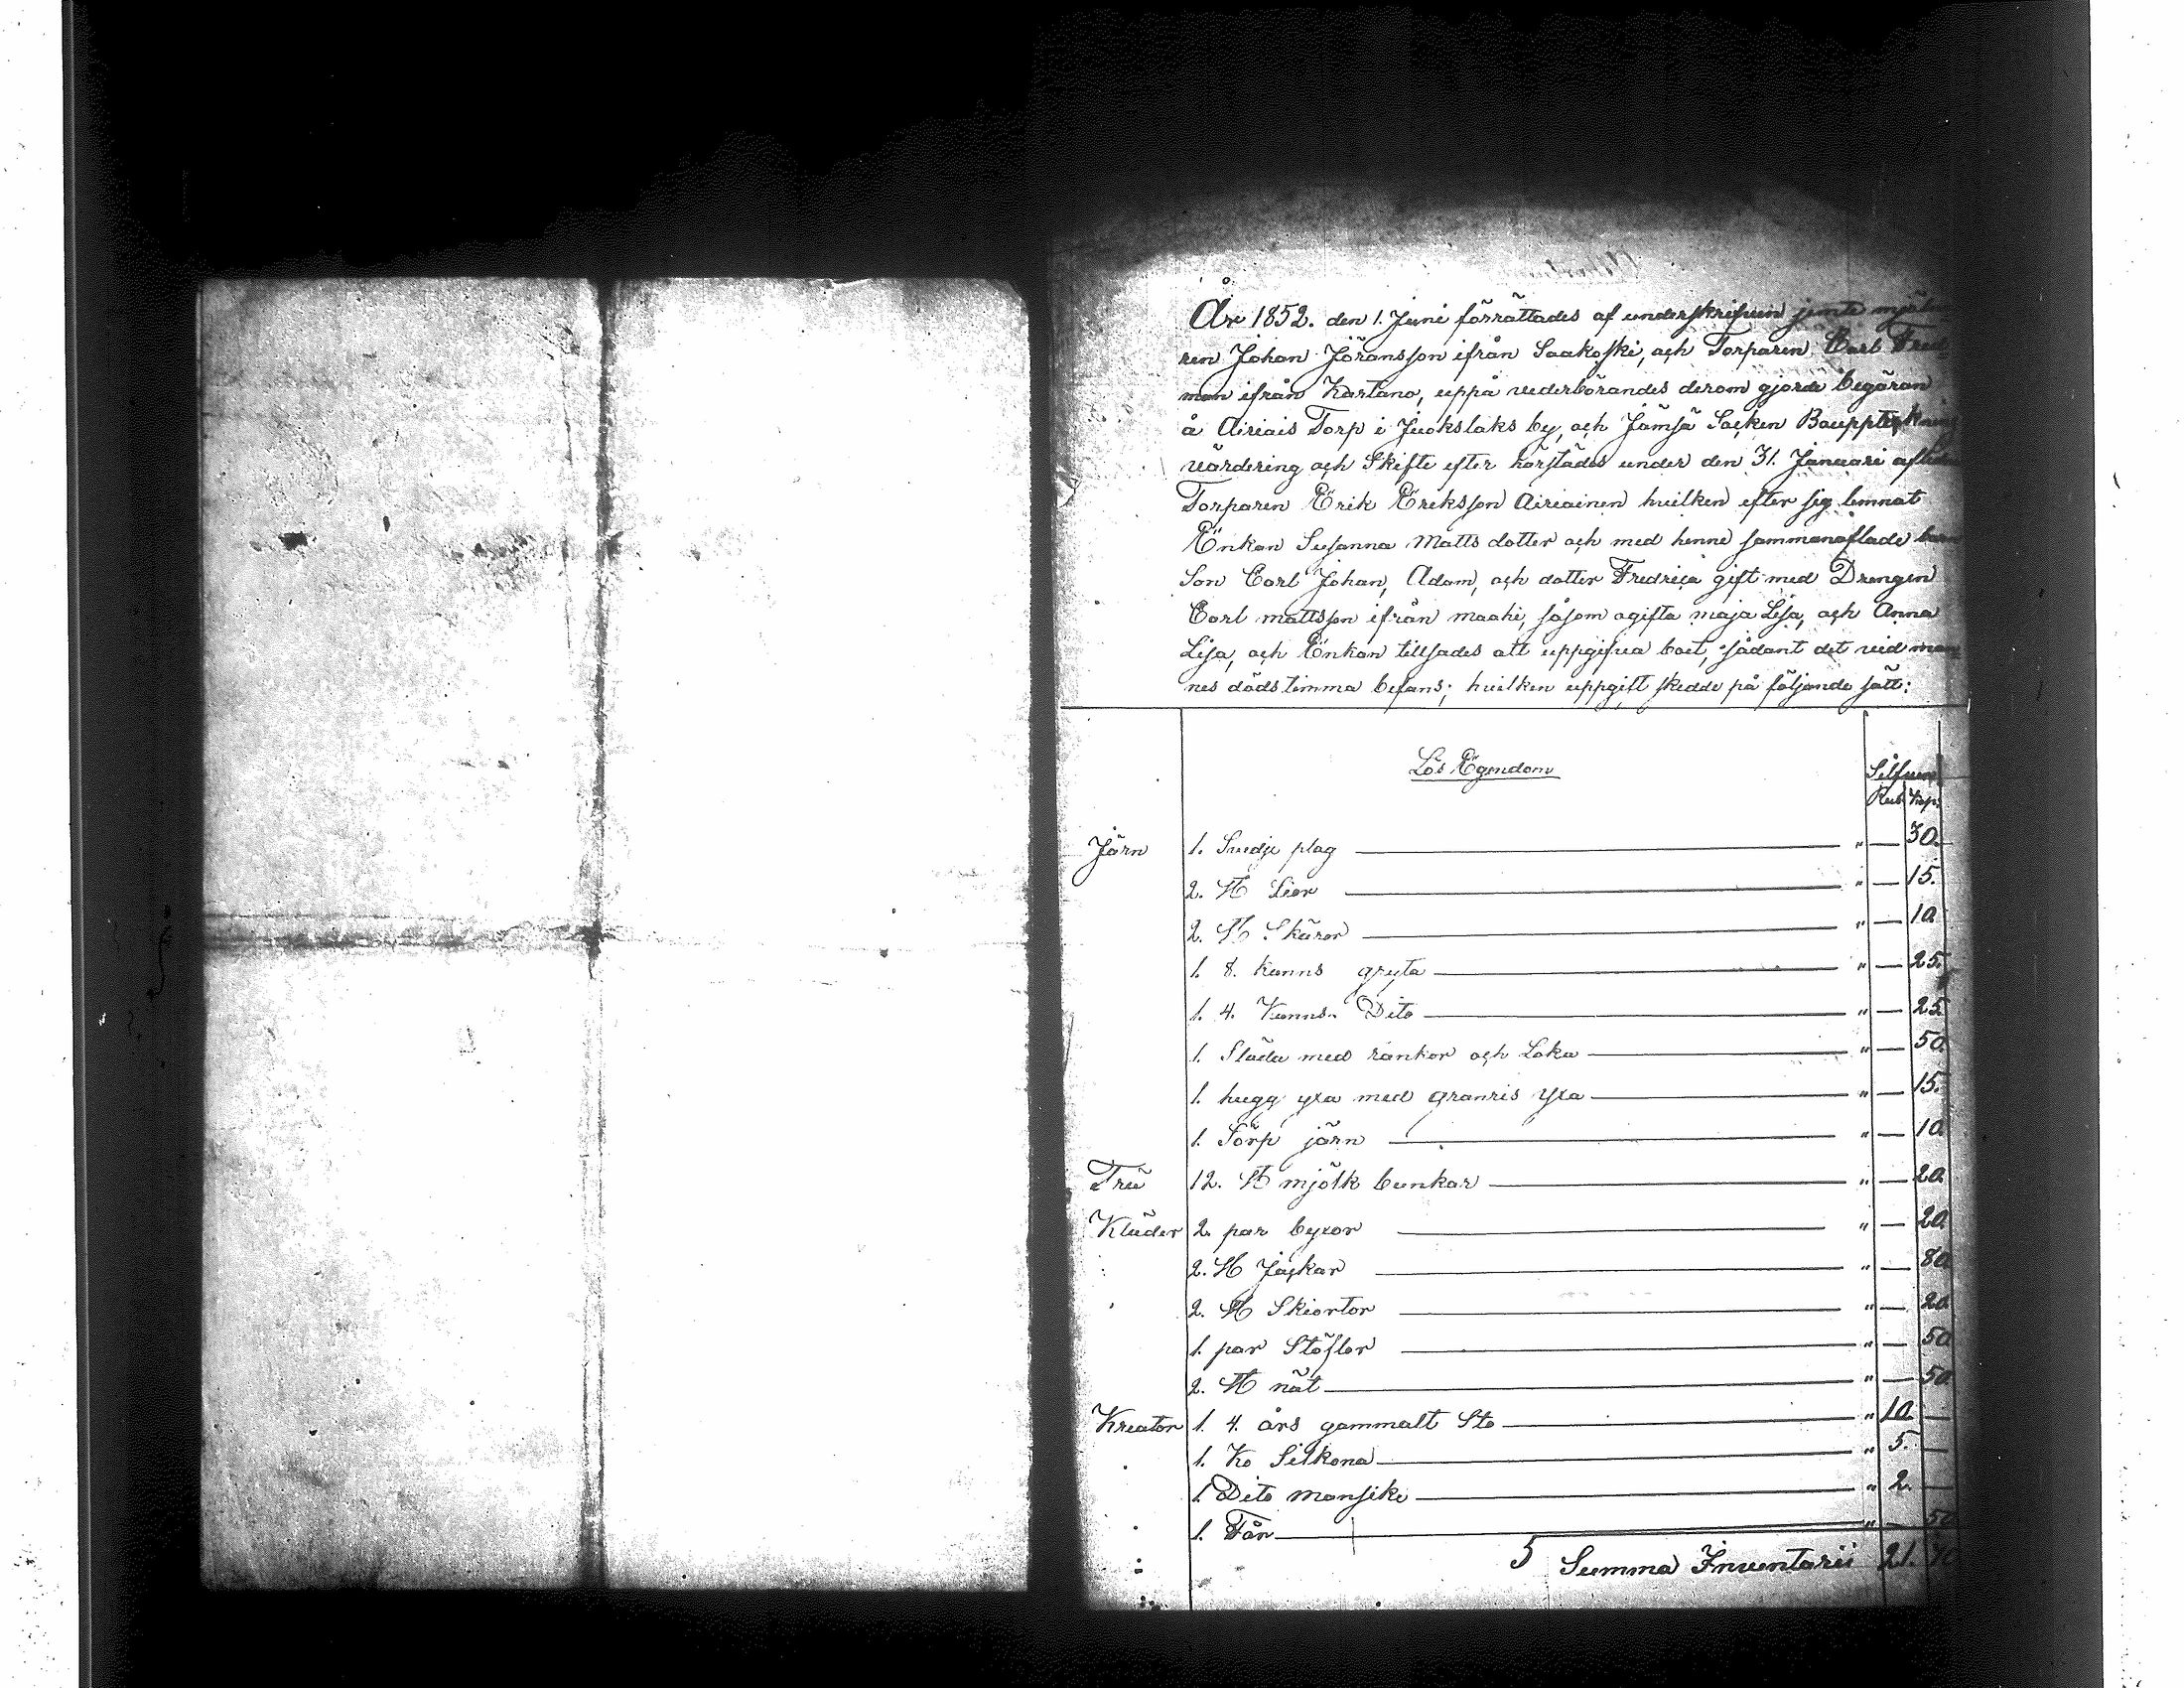 År 1852. den 1. Juni förrättades af underskrifven jemte mjöl
ren Johan Jöransson ifrån Saakoski, och Torparen Carl Fred
man ifrån Kartano, uppå vederbörandes derom gjorde begäran
å Airiais Torp i Juokslaks by, och Jämsä Socken Bouppteckning
värdering och Skifte efter härstädes under den 31. Januari aflidne
Torparen Erik Eriksson Airiainen hvilken efter sig lemnat
Enkan Susanna Matts dotter och med henne sammanaflade barn
Son Carl Johan, Adam, och dotter Fredrica gift med Drengen
Carl mattsson ifrån maahi, såsom ogifta maja Lisa, och Anna
Lisa, och Enkan tillsades att uppgifva boet, sådant det vid man
nes dödstimma befans; hvilken uppgift skedde på följande sätt:
Lös Egendom
Silfver
Rub. Kop.
Järn 1. Smidje plag " — 30.
2. St Lior " — 15.
2. St Skäror " — 10
1. 8. kanns gryta " — 25.
1. 4. Kanns Dito " — 25
1. Släda med rankor och Loka " — 50.
1. hugg yxa med granris yxa " — 15.
1. Sörp järn " — 10
Trä 12. St mjölk bunkar " — 20
Kläder 2. par byxor " — 20
2. St Jackar " — 80
2. St Skiortor " — 20
1. par Stöflor " — 50
2. St nät " — 50
Kreatur 1. 4. års gammalt Sto " 10. —
1. Ko Silkona " 5. —
1. Dito mansike " 2. —
1. Får " — 50
5 Summa Inventarii 21. 70